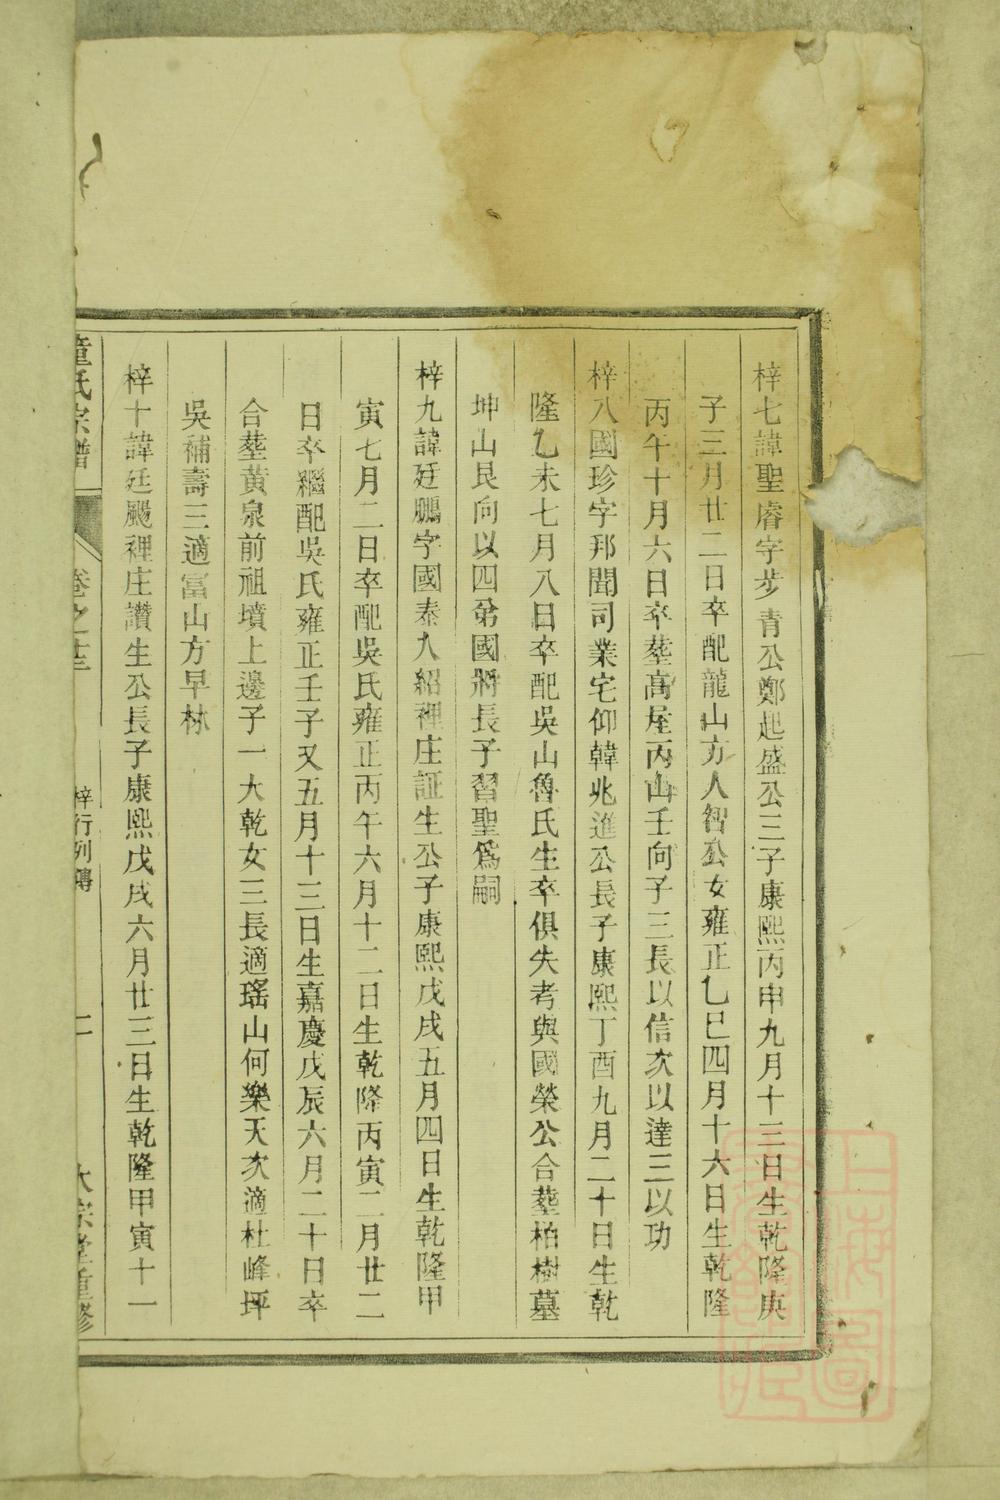 梓七諱聖睿字步青公鄭起盛公三子康熙丙申九月十三日生乾隆庚
子三月廿二日卒配龍山方人智公女雍正乙巳四月十六日生乾隆
丙午十月六日卒塟高屋丙山壬向子三長以信次以達三以功
梓八國珍字邦聞司業宅仰韓兆進公長子康熙丁酉九月二十日生乾
隆乙未七月八日卒配吳山魯氏生卒俱失考與國榮公合塟柏樹墓
坤山艮向以四弟國將長子習聖爲嗣
梓九諱廷鵬字國泰入紹裡庄証生公子康熙戊戌五月四日生乾隆甲
寅七月二日卒配吳氏雍正丙午六月十二日生乾隆丙寅二月廿二
日卒繼配吳氏雍正壬子又五月十三日生嘉慶戊辰六月二十日卒
合塟黃泉前祖墳上邊子一大乾女三長適瑤山何樂天次適杜峰坪
吳補壽三適富山方早林
梓十諱廷颺裡庄讚生公長子康熙戊戌六月廿三日生乾隆甲寅十一
童氏宗譜 卷之 梓行列傳 二 大宗堂重修
上海圖書館藏